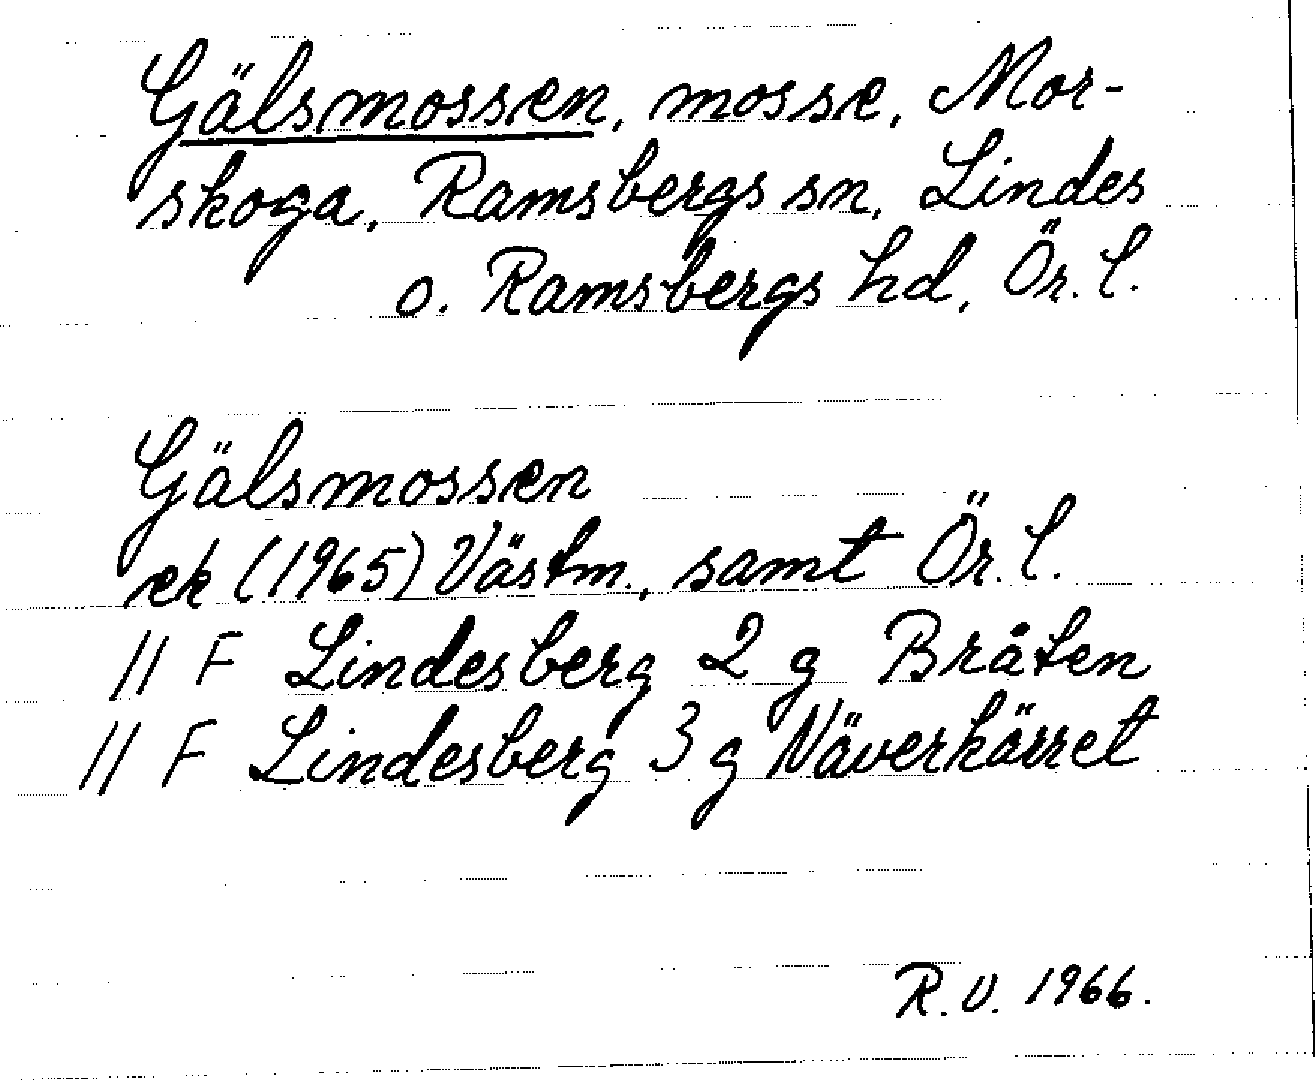 Gälsmossen, mosse, Mor-
skoga, Ramsbergs sn, Lindes
o. Ramsbergs hd, Ör. l.
Gälsmossen
ek (1965) Västm., samt Ör. l.
11 F Lindesberg 2 g Bråten
11 F Lindesberg 3 g Näverkärret
R.V. 1966.